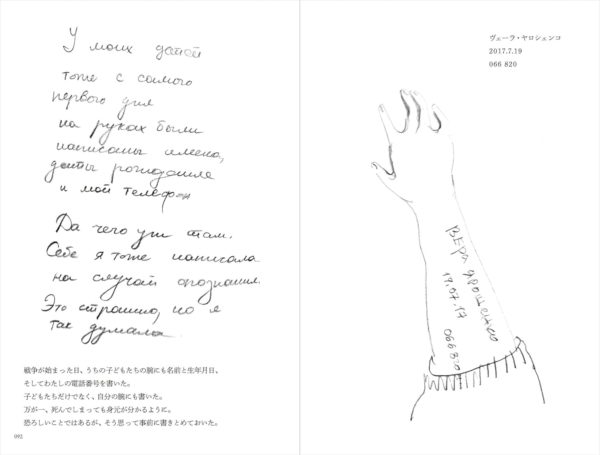 У моих детей
тоже с самого
первого дня
на руках были
написаны имена,
даты рождения
и мой телефон
Да чего уж там.
Себе я тоже написала
на случай опознания.
Это страшно, но я
так думала.
戦争が始まった日、うちの子どもたちの腕にも名前と生年月日、
そしてわたしの電話番号を書いた。
子どもたちだけでなく、自分の腕にも書いた。
万が一、死んでしまっても身元が分かるように。
恐ろしいことではあるが、そう思って事前に書きとめておいた。
092
ヴェーラ・ヤロシェンコ
2017.7.19
066 820
ВЕРА Ярошенко
19.07.17
066820